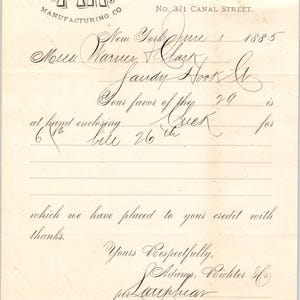 MANUFACTURING CO
No. 371 CANAL STREET.
New York June 1 1885
Mess Warner & Clark
Sandy Hook Ct
Your favor of the 29 is
at hand enclosing Check for
6 bill 26th
which we have placed to your credit with
thanks.
Yours Respectfully,
Adams, Richter & Co
per